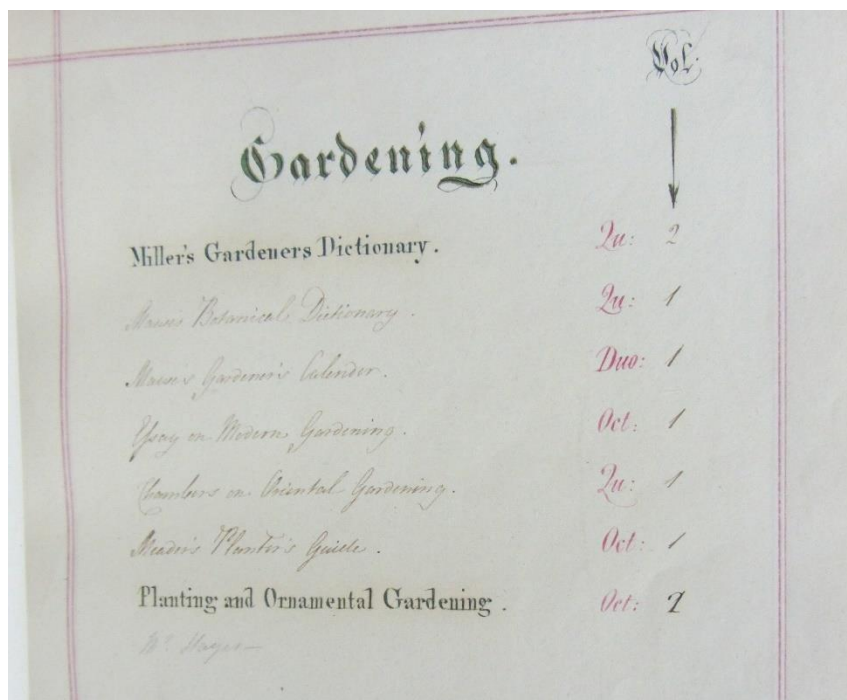 Vol.
Gardening.
Miller's Gardeners Dictionary. Qu: 2
Mawe's Botanical Dictionary. Qu: 1
Mawe's Gardener's Calender. Duo: 1
Essay on Modern Gardening. Oct: 1
Chambers on Oriental Gardening. Qu: 1
Meader's Planter's Guide. Oct: 1
Planting and Ornamental Gardening. Oct: 2